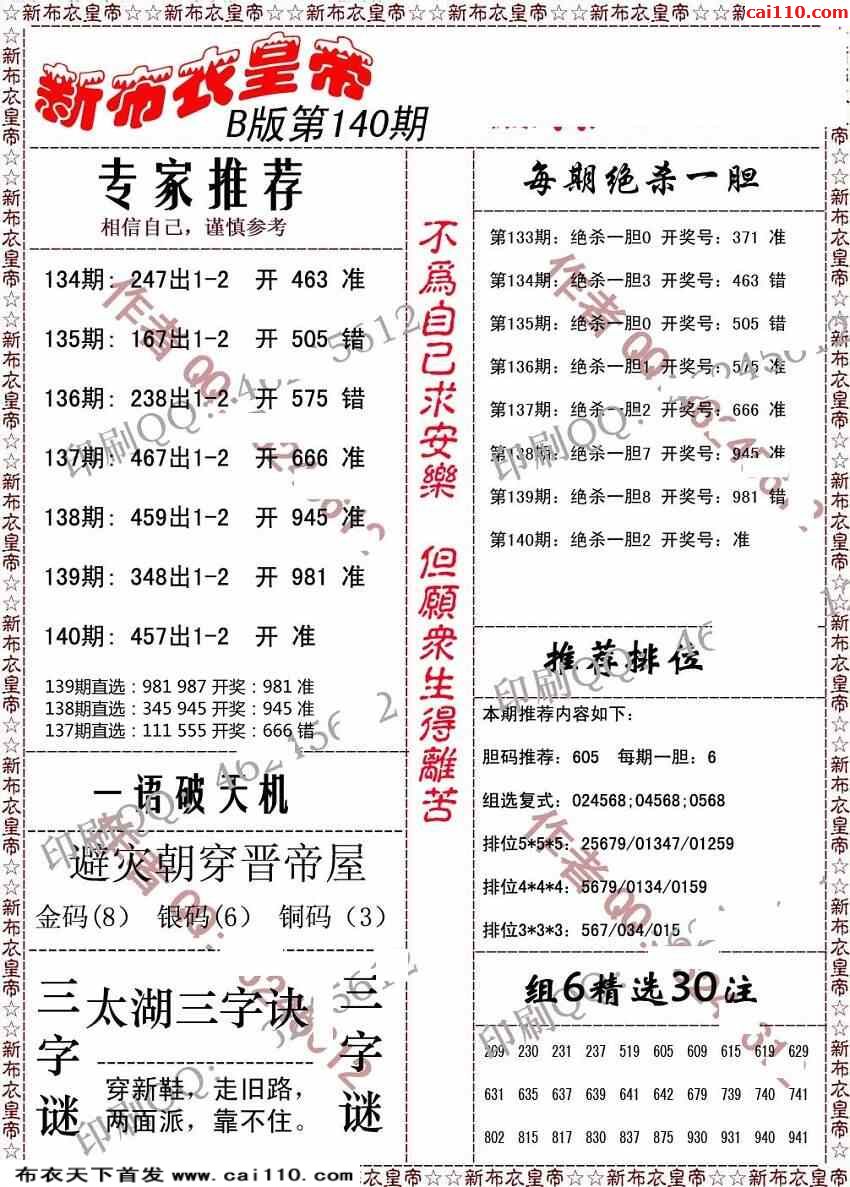 ☆新布衣皇帝☆☆新布衣皇帝☆☆新布衣皇帝☆☆新布衣皇帝☆☆新布衣皇帝☆☆新
cai110.com
新布衣皇帝
B版第140期
专家推荐
相信自己，谨慎参考
134期: 247出1-2 开 463 准
135期: 167出1-2 开 505 错
136期: 238出1-2 开 575 错
137期: 467出1-2 开 666 准
138期: 459出1-2 开 945 准
139期: 348出1-2 开 981 准
140期: 457出1-2 开 准
139期直选：981 987 开奖：981 准
138期直选：345 945 开奖：945 准
137期直选：111 555 开奖：666 错
一语破天机
避灾朝穿晋帝屋
金码(8) 银码(6) 铜码（3）
三字谜
太湖三字诀
穿新鞋，走旧路，
两面派，靠不住。
三字谜
不爲自己求安樂 但願衆生得離苦
每期绝杀一胆
第133期: 绝杀一胆0 开奖号: 371 准
第134期: 绝杀一胆3 开奖号: 463 错
第135期: 绝杀一胆0 开奖号: 505 错
第136期: 绝杀一胆1 开奖号: 575 准
第137期: 绝杀一胆2 开奖号: 666 准
第138期: 绝杀一胆7 开奖号: 945 准
第139期: 绝杀一胆8 开奖号: 981 错
第140期: 绝杀一胆2 开奖号: 准
推荐排位
本期推荐内容如下:
胆码推荐: 605 每期一胆: 6
组选复式: 024568;04568;0568
排位5*5*5: 25679/01347/01259
排位4*4*4: 5679/0134/0159
排位3*3*3: 567/034/015
组6精选30注
209 230 231 237 519 605 609 615 619 629
631 635 637 639 641 642 679 739 740 741
802 815 817 830 837 875 930 931 940 941
布衣天下首发 www.cai110.com
衣皇帝☆☆新布衣皇帝☆☆新布衣皇帝☆☆新布衣皇帝☆